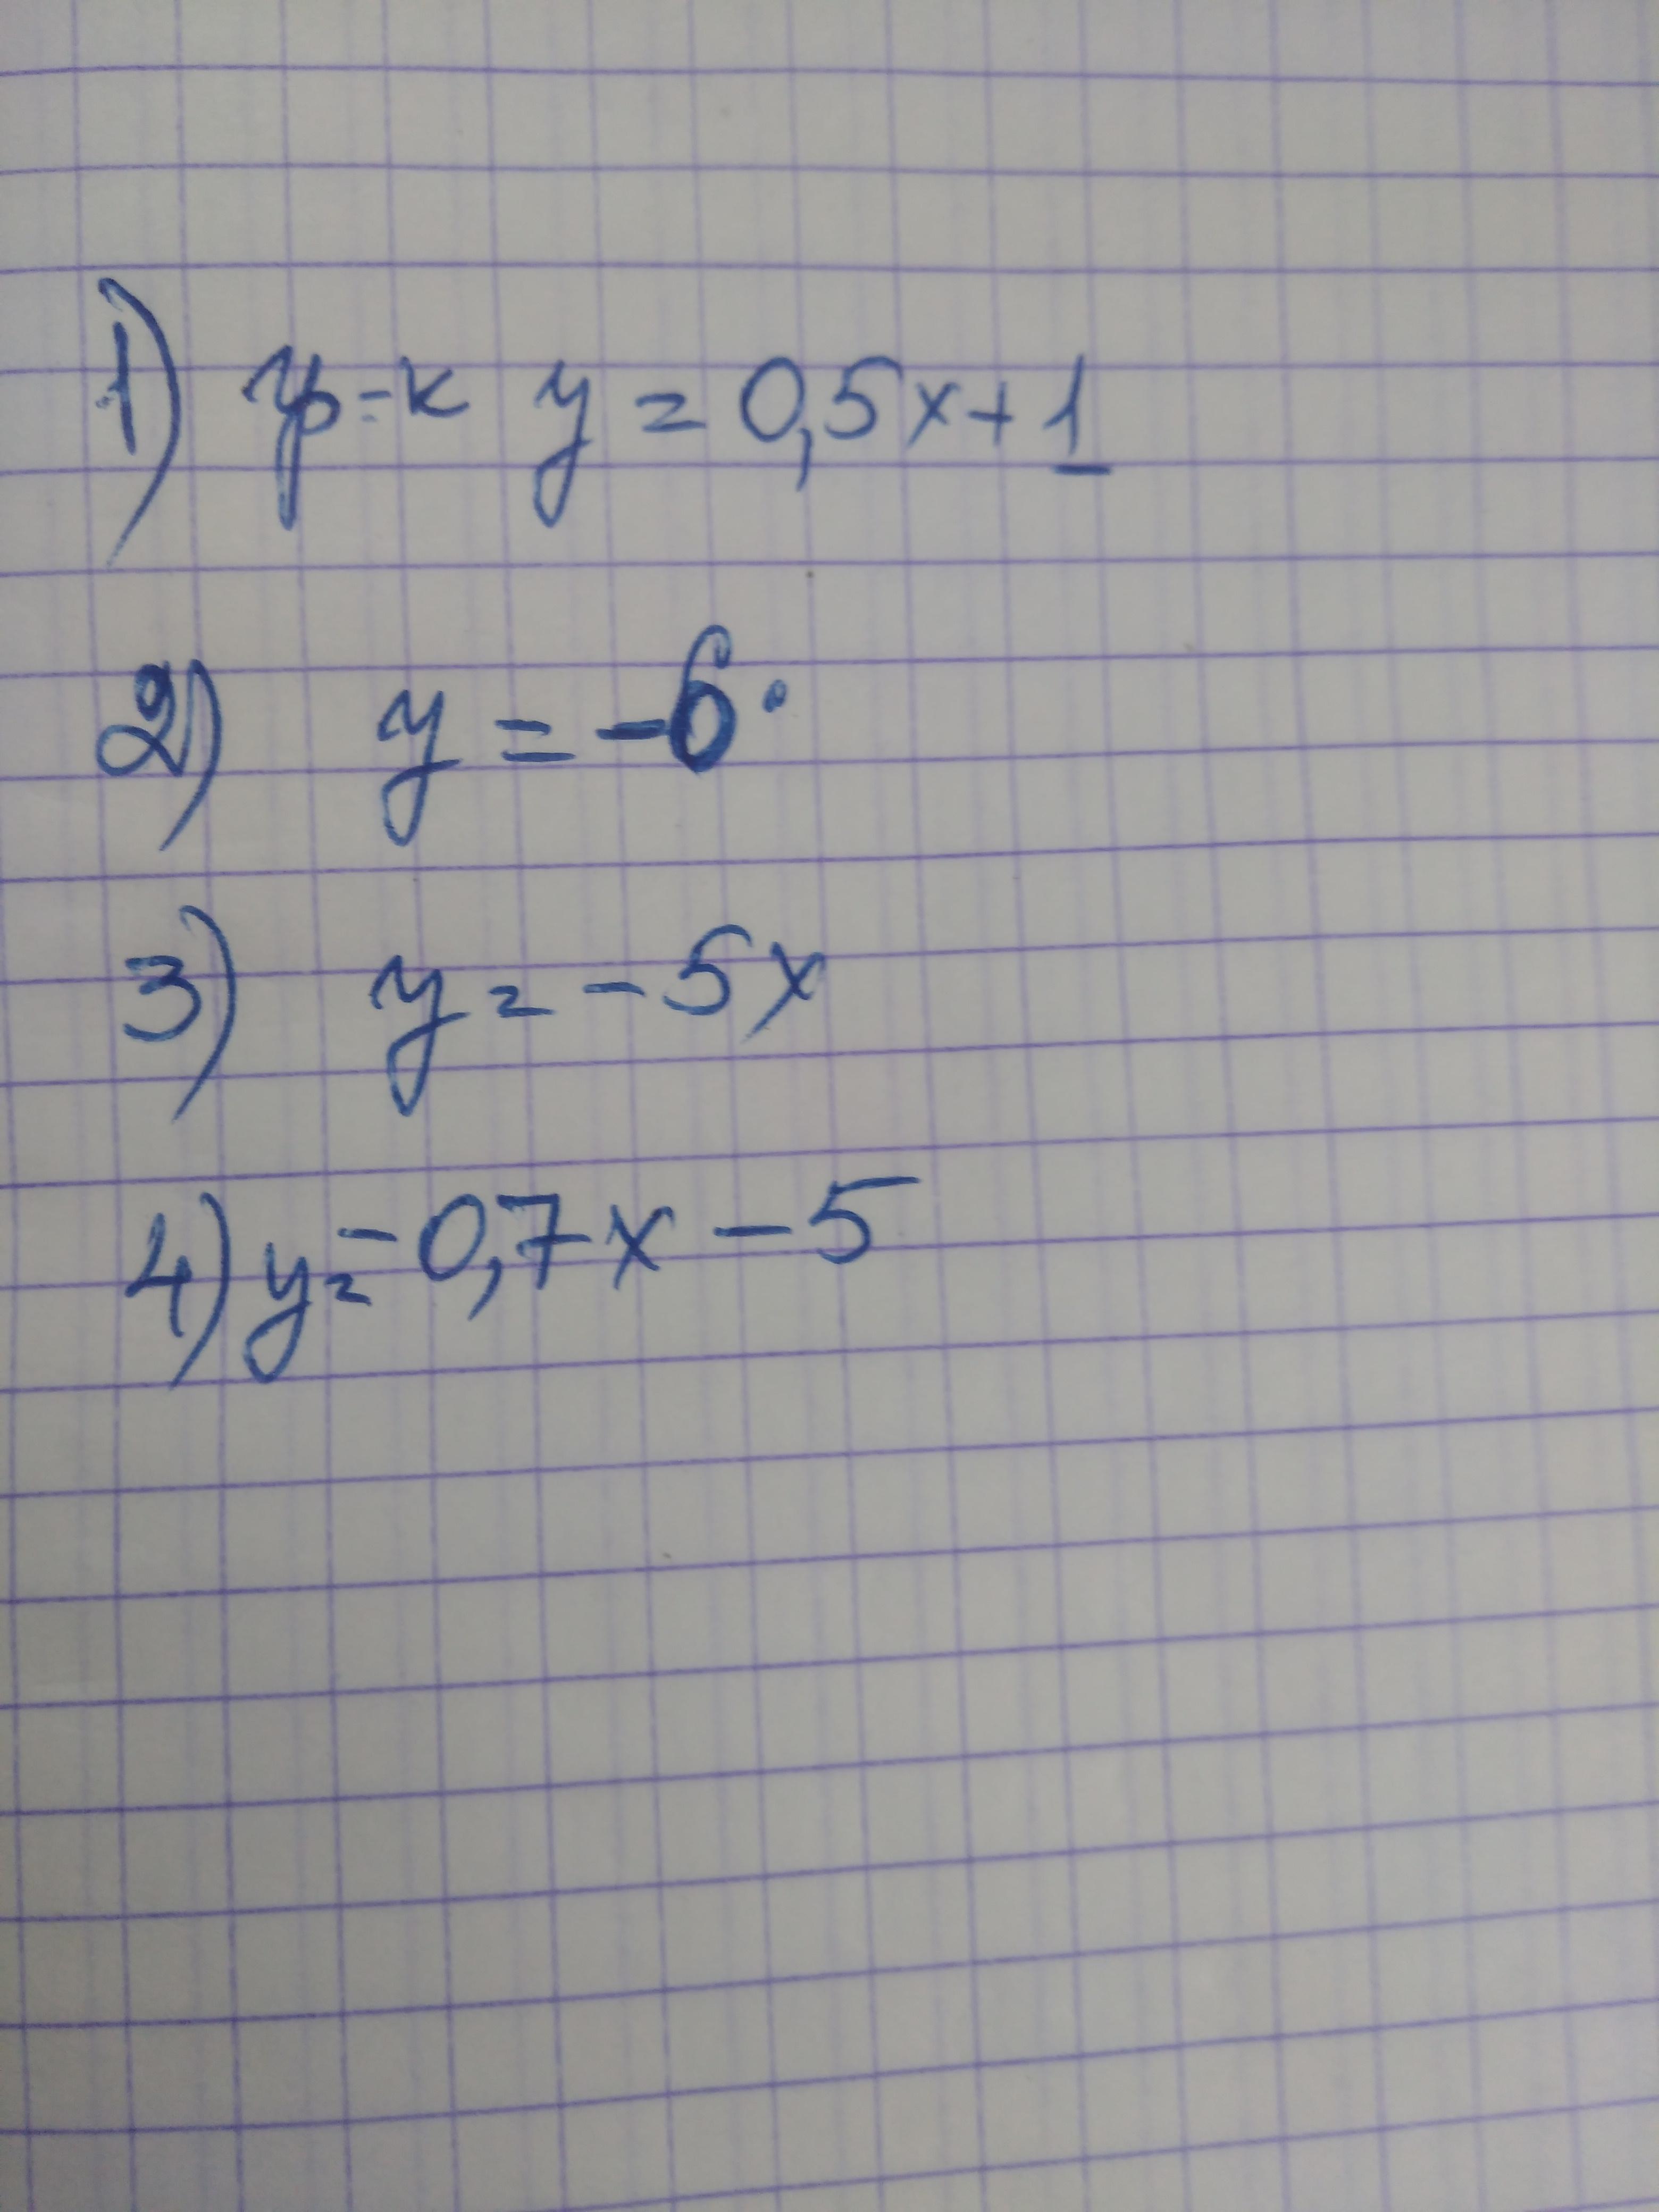 1) гр-к y = 0,5x+1
2) y = -6
3) y = -5x
4) y = -0,7x - 5